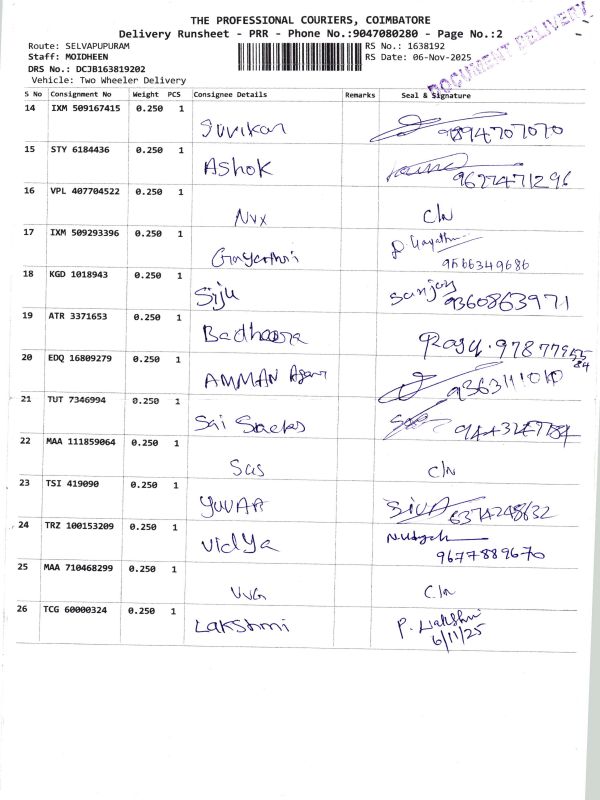 THE PROFESSIONAL COURIERS, COIMBATORE
Delivery Runsheet - PRR - Phone No.:9047080280 - Page No.:2
DOCUMENT DELIVERY
Route: SELVAPUPURAM
RS No.: 1638192
Staff: MOIDHEEN
RS Date: 06-Nov-2025
DRS No.: DCJB163819202
Vehicle: Two Wheeler Delivery
S No Consignment No Weight PCS Consignee Details Remarks Seal & Signature
14 IXM 509167415 0.250 1
9894707070
15 STY 6184436 0.250 1 Ashok
9677471296
16 VPL 407704522 0.250 1 Nvx C/N
17 IXM 509293396 0.250 1
9566349686
18 KGD 1018943 0.250 1 Siju Sanjay 9360863971
19 ATR 3371653 0.250 1
20 EDQ 16809279 0.250 1 AMMAN Agency
9363111010
21 TUT 7346994 0.250 1 Sai
22 MAA 111859064 0.250 1 Sas C/N
23 TSI 419090 0.250 1 YUVAA SIVA 6374248632
24 TRZ 100153209 0.250 1 Vidya
9677889670
25 MAA 710468299 0.250 1 VVG C/N
26 TCG 60000324 0.250 1 Lakshmi P. Lakshmi
6/11/25